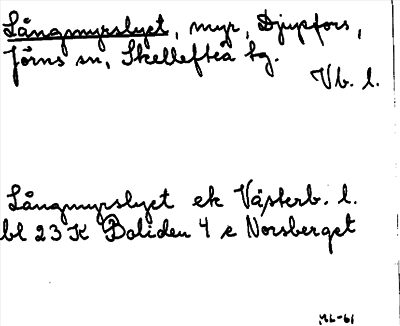 Långmyrslyet, myr, Djupfors,
Jörns sn, Skellefteå tg.
Vb. l.
Långmyrslyet ek Västerb. l.
bl 23 K Boliden 4 e Norsberget